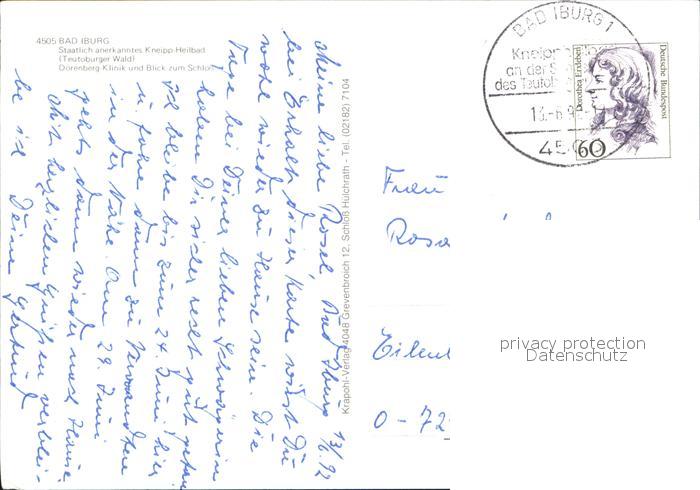 4505 BAD IBURG
Staatlich anerkanntes Kneipp-Heilbad
(Teutoburger Wald)
Dörenberg-Klinik und Blick zum Schloß
Meine liebe Rosel, Bad Iburg 13/6.92
bei Erhalt dieser Karte wirst Du
wohl wieder zu Hause sein. Die
Tage bei Deiner lieben Schwägerin
haben Dir sicher recht gut getan
Ich bleibe bis zum 24. Juni hier
u. fahre dann zu Verwandten
in der Nähe. Am 29. Juni
gehts dann wieder nach Hause
Mit herzlichen Grüßen verblei-
be ich Deine Gertrud
Krapohl-Verlag 4048 Grevenbroich 12, Schloß Hülchrath - Tel. (02182) 7104
BAD IBURG 1
Kneipp
an der
des Teutob
13.-6.9
45
Dorothea Erxleben
Deutsche Bundespost
60
Frau
Rosa
Eilenb
O-72
privacy protection
Datenschutz